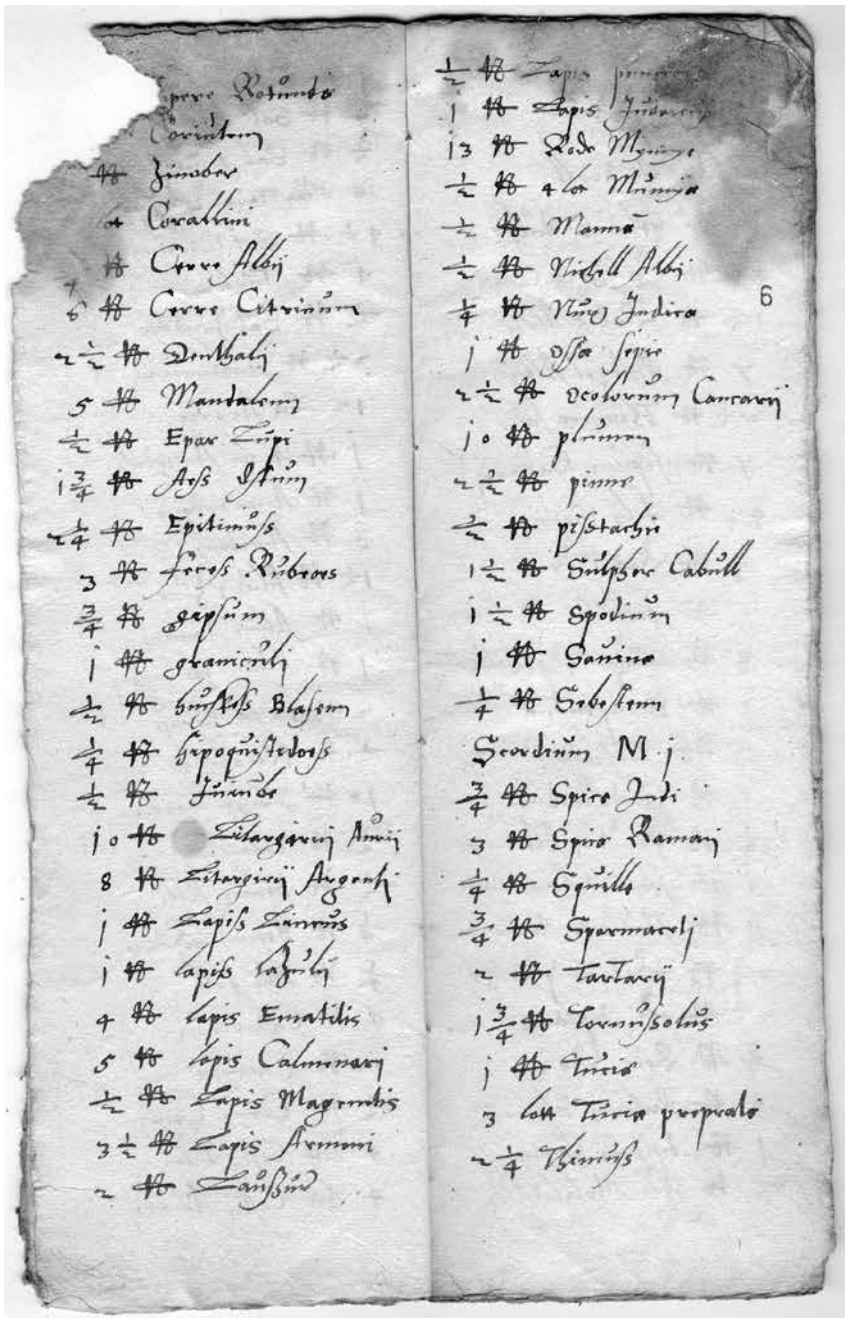 Rotundis
Coriutem
℔ Zinober
lot Corallini
℔ Cerre Albij
6 ℔ Cerre Citrinum
2 1/2 ℔ Denthalij
5 ℔ Mandalenn
1/2 ℔ Epar Lupi
1 3/4 ℔ Aess Ustum
2 1/4 ℔ Epitimuss
3 ℔ fecess Rubeoes
3/4 ℔ gipsum
j ℔ graniculj
1/2 ℔ Blasenn
1/4 ℔ hipoquistedoess
1/2 ℔ Juiube
jo ℔ Litargirij Aurij
8 ℔ Litargirij Argentj
j ℔ Lapiss Linrus
j ℔ lapiss laZulij
4 ℔ lapis Ematilis
5 ℔ lapis Calmenari
1/2 ℔ Lapis Magenitis
3 1/2 ℔ Lapis Armeni
2 ℔ Laussur
1/2 ℔ Lapis
j ℔ Lapis
j3 ℔ Rode Mynnye
1/2 ℔ 4 lot Mumya
1/2 ℔ Manna
1/2 ℔ Nichell Albij
6
1/4 ℔ Nux Indica
j ℔ ossa sepie
2 1/2 ℔ ocolorum Cancarij
jo ℔ plumen
2 1/2 ℔ pinne
1/2 ℔ pisstachie
1 1/2 ℔ Sulpher Cabull
1 1/2 ℔ Spodium
j ℔ Sauina
1/4 ℔ Sebestenn
Scordium M j
3/4 ℔ Spica Indi
3 ℔ Spica Ramari
1/4 ℔ Squilla
3/4 ℔ Spermacetj
2 ℔ Tartarij
1 3/4 ℔ Tornussolus
j ℔ Tucia
3 lott Tucia preprata
2 1/4 Thimuss